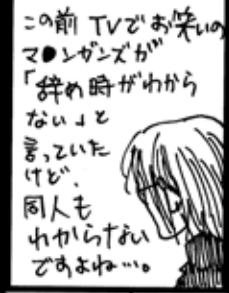 この前 TVでお笑いの
マ●ンガンズが
「辞め時がわから
ない」と
言っていた
けど、
同人も
わからない
ですよね…。